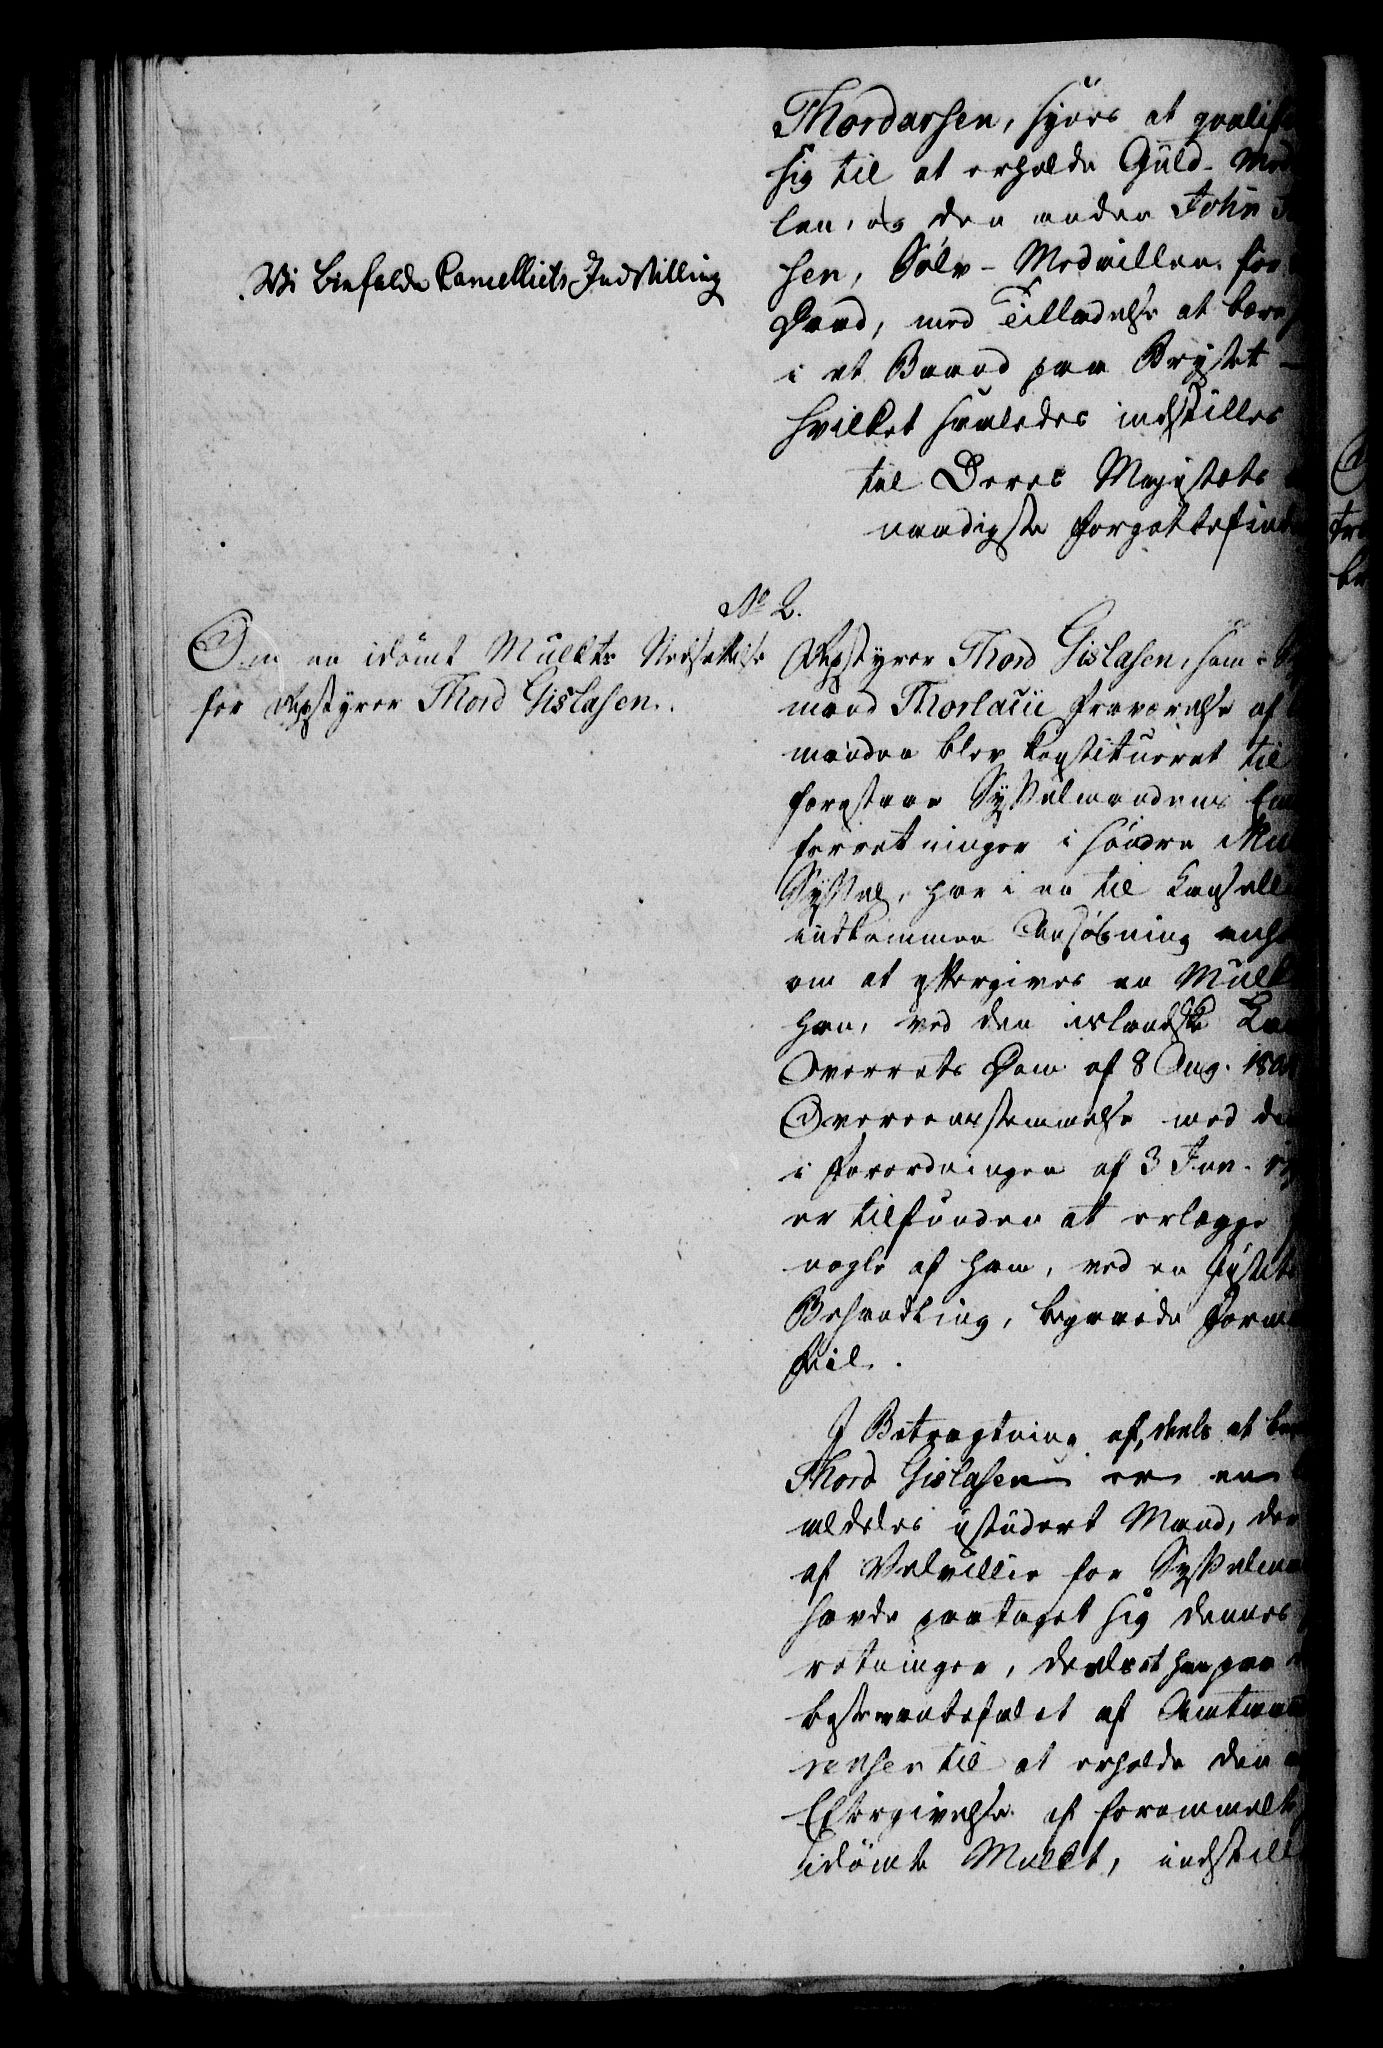 Thordarsen, synes at qvalifi
sig til at erholde Guld-Med
len, og den anden John
sen, Sølv-Medaillen for
Daad, med Tilladelse at bære
i et Baand paa Brystet —
hvilket saaledes indstilles
til Deres Majestæts
naadigste Forgotbefind
Vi biefalde Cancelliets Indstilling
No 2.
Om en idømt Mulkts Nedsættelse
for Repstyrer Thord Gislasen.
Repstyrer Thord Gislasen, som i
mand Thorlacii Fraværelse af
manden blev Constitueret til
forestaae Sysselmandens Em
forretninger i Søndre Mu
Syssel, har i en til Cancell
indkommen Ansøgning anh
om at eftergives en Mulkt
han, ved den islandske Lan
Overrets Dom af 8 Aug. 180
Overeensstemmelse med de
i Forordningen af 3 Jun.
er tilfunden at erlægge
nogle af ham, ved en Justits
Behandling, begaaede Forma
Feil.
I Betragtning af, deels at be
Thord Gislasen er en
aldeles ustuderet Mand, der
af Velvillie for Sysselma
havde paataget sig dennes
retninger, deels at han paa
beste anbefalet af Amtman
til at erholde den
Eftergivelse af forommeldte
idømte Mulkt, indstill